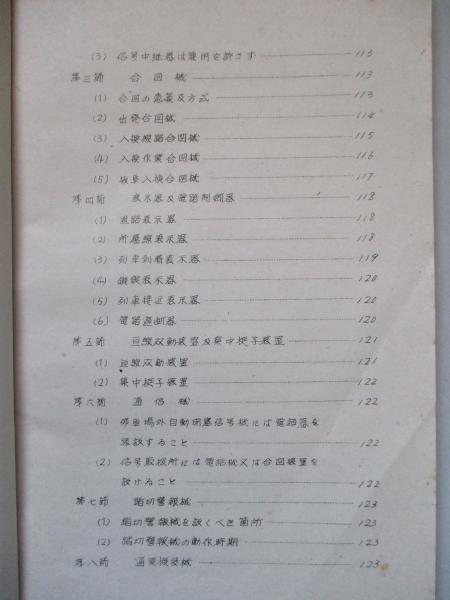 (3) 信号中継器は濫用を許さず 113
第三節 合図機 113
(1) 合図の意義及方式 113
(2) 出発合図機 114
(3) 入換線路合図機 115
(4) 入換作業合図機 116
(5) 入換合図機 117
第四節 表示器及電路制断器 118
(1) 進路表示器 118
(2) 所属線表示器 118
(3) 列車到着表示器 119
(4) 鎖錠表示器 120
(5) 列車接近表示器 120
(6) 電路遮断器 120
第五節 双動装置及集中梃子装置 121
(1) 双動装置 121
(2) 集中梃子装置 122
第六節 通信機 122
(1) 停車場外自動閉塞信号機には電話器を
添設すること 122
(2) 信号取扱所には電話機又は合図装置を
設けること 122
第七節 踏切警報機 123
(1) 踏切警報機を設くべき箇所 123
(2) 踏切警報機の動作時期 123
第八節 通票授受機 123